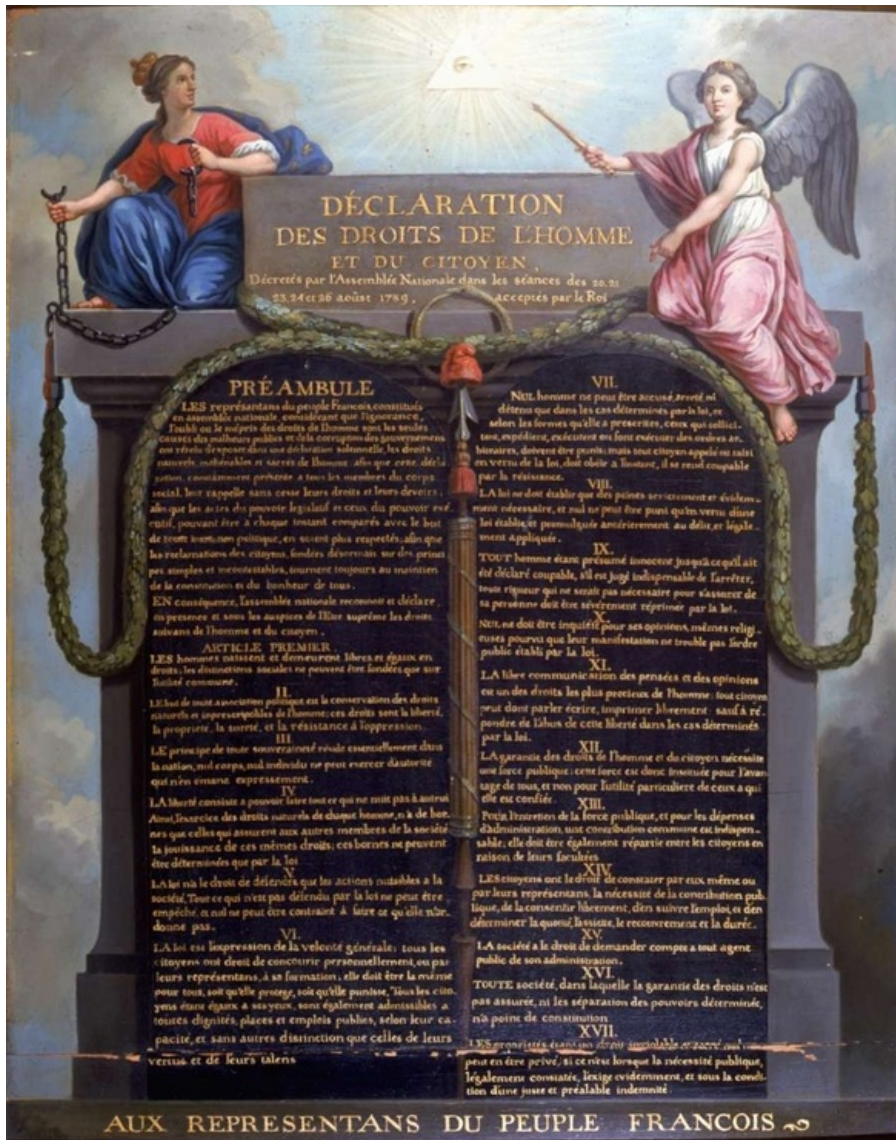 DÉCLARATION
DES DROITS DE L'HOMME
ET DU CITOYEN,
Décretés par l'Assemblée Nationale dans les séances des 20. 21
23. 24 et 26 août 1789, acceptés par le Roi
PRÉAMBULE
LES représentans du peuple François, constitués
en assemblée nationale, considérant que l'ignorance,
l'oubli ou le mépris des droits de l'homme sont les seules
causes des malheurs publics et de la corruption des gouvernemens
ont résolu d'exposer dans une déclaration solennelle, les droits
naturels, inaliénables et sacrés de l'homme: afin que cette décla
ration, constamment présente a tous les membres du corps
social, leur rappelle sans cesse leurs droits et leurs devoirs,
afin que les actes du pouvoir legislatif et ceux du pouvoir exé
cutif, pouvant être à chaque instant comparés avec le but
de toute institution politique, en soient plus respectés; afin que
les reclamations des citoyens, fondées désormais sur des princi
pes simples et incontestables, tournent toujours au maintien
de la constitution et du bonheur de tous.
EN conséquence, l'assemblée nationale reconnoit et déclare,
en presence et sous les auspices de l'Etre suprême les droits
suivans de l'homme et du citoyen.
ARTICLE PREMIER.
LES hommes naissent et demeurent libres et égaux en
droits; les distinctions sociales ne peuvent être fondées que sur
l'utilité commune.
II.
LE but de toute association politique est la conservation des droits
naturels et inprescriptibles de l'homme; ces droits sont la liberté,
la propriété, la sureté, et la résistance à l'oppression.
III.
LE principe de toute souveraineté réside essentiellement dans
la nation, nul corps, nul individu ne peut exercer d'autorité
qui n'en émane expressement.
IV.
LA liberté consiste a pouvoir faire tout ce qui ne nuit pas à autrui
Ainsi, l'exercice des droits naturels de chaque homme, n'a de bor-
nes que celles qui assurent aux autres membres de la société
la jouissance de ces mêmes droits; ces bornes ne peuvent
être déterminées que par la loi
V.
LA loi n'a le droit de défendre que les actions nuisibles a la
société. Tout ce qui n'est pas défendu par la loi ne peut être
empêché, et nul ne peut être contraint à faire ce qu'elle n'or-
donne pas.
VI.
LA loi est l'expression de la volonté générale; tous les
citoyens ont droit de concourir personnellement, ou par
leurs représentans, à sa formation; elle doit être la même
pour tous, soit qu'elle protege, soit qu'elle punisse, Tous les cito
yens étant égaux à ses yeux, sont également admissibles a
toutes dignités, places et emplois publics, selon leur ca-
pacité, et sans autres distinction que celles de leurs
vertus et de leurs talens
VII.
NUL homme ne peut être accusé, arreté, ni
détenu que dans les cas déterminés par la loi, et
selon les formes qu'elle a prescrites, ceux qui sollici-
tent, expédient, exécutent ou font exécuter des ordres ar-
bitraires, doivent être punis; mais tout citoyen appelé ou saisi
en vertu de la loi, doit obéir a l'instant, il se rend coupable
par la résistance.
VIII.
LA loi ne doit établir que des peines strictement et évidem-
ment nécessaire, et nul ne peut être puni qu'en vertu d'une
loi établie et promulguée antérierement au délit, et légale-
ment appliquée.
IX.
TOUT homme étant présumé innocent jusqu'à ce qu'il ait
été déclaré coupable, s'il est jugé indispensable de l'arrêter,
toute rigueur qui ne serait pas nécessaire pour s'assurer de
sa personne doit être sévèrement réprimée par la loi.
X.
NUL ne doit être inquiété pour ses opinions, mêmes religi-
euses pourvu que leur manifestation ne trouble pas l'ordre
public établi par la loi.
XI.
LA libre communication des pensées et des opinions
est un des droits les plus precieux de l'homme; tout citoyen
peut donc parler écrire, imprimer librement: sauf à ré-
pondre de l'abus de cette liberté dans les cas déterminés
par la loi.
XII.
LA garantie des droits de l'homme et du citoyen nécessite
une force publique; cette force est donc instituée pour l'avan
tage de tous, et non pour l'utilité particuliere de ceux a qui
elle est confiée.
XIII.
Pour l'entretien de la force publique, et pour les dépenses
d'administration, une contribution commune est indispen-
sable; elle doit être également répartie entre les citoyens en
raison de leurs facultées
XIV.
LES citoyens ont le droit de constater par eux même ou
par leurs représentans, la nécessité de la contribution pub-
lique, de la consentir librement, d'en suivre l'emploi, et d'en
déterminer la quotité, l'assiette, le recouvrement et la durée.
XV.
LA société a le droit de demander compte a tout agent
public de son administration.
XVI.
TOUTE société, dans laquelle la garantie des droits n'est
pas assurée, ni les séparation des pouvoirs déterminée,
n'a point de constitution
XVII.
LES propriétés étant un droit inviolable et sacré, nul ne
peut en être privé, si ce n'est lorsque la nécessité publique,
légalement constatée, l'exige evidemment, et sous la condi-
tion d'une juste et préalable indemnité.
AUX REPRESENTANS DU PEUPLE FRANCOIS